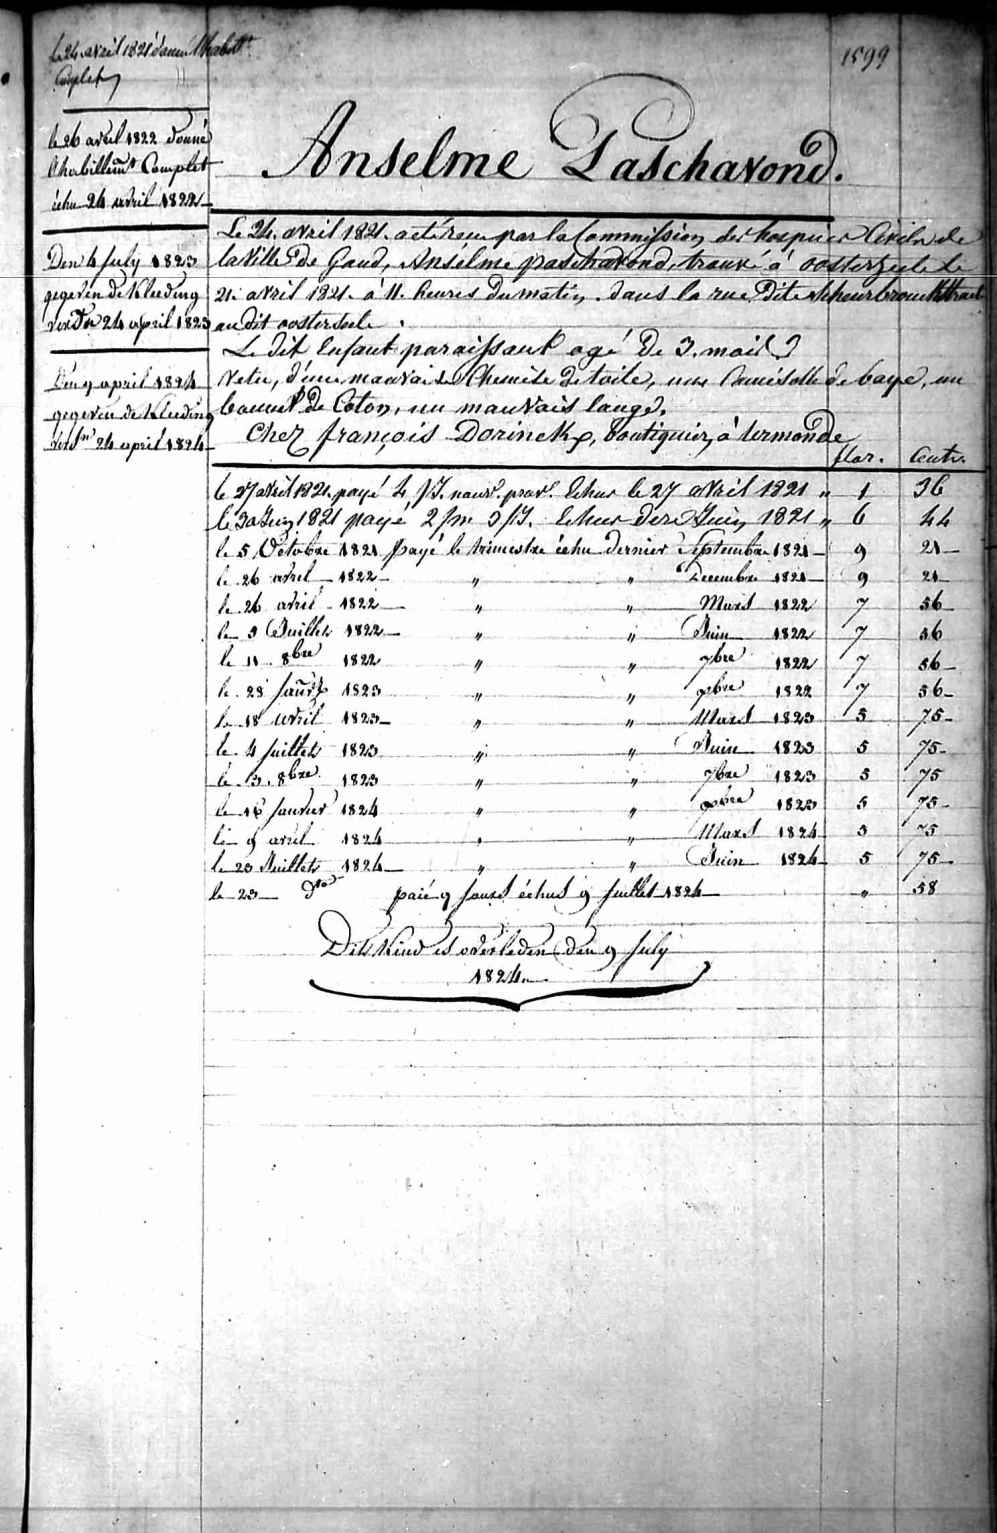 1599
le 24 avril 1821 donné l'habt
Complet
le 26 avril 1822 donné
l'habillemt Complet
échu 24 avril 1822
Den 4 July 1823
gegeven de Kleeding
24 april 1823
Den 9 april 1824
gegeven de Kleeding
24 april 1824
Anselme Paschavond.
Le 24 avril 1821. a été reçu par la Commission des hospices Civils de
la Ville de Gand, Ansélme paschavond, trouvé à oosterzeele le
21 avril 1821. à 11. heures du matin. dans la rue Dite
au dit oosterzeele.
Le dit Enfant paraissant agé De 3. mois
Vetu, d'une mauvaise Chemise de toile, une Camisolle de baye, un
bonnet de Coton, un mauvais lange.
Chez françois Dorinck, boutiquier, à termonde
flor. Cents
le 27 avril 1821. payé 4 Echus le 27 avril 1821 " 1 36
le 30 Juin 1821 payé 2 Echus der Juin 1821 " 6 44
le 5 Octobre 1821 payé le trimestre échu dernier Septembre 1821 9 21
le 26 avril 1822 " " Decembre 1821 9 21
le 26 avril 1822 " " Mars 1822 7 56
le 5 Juillet 1822 " " Juin 1822 7 56
le 11 8bre 1822 " " 7bre 1822 7 56
le 28 Janvr 1823 " " 1822 7 56
le 18 avril 1823 " " Mars 1823 5 75
le 4 juillet 1823 " " Juin 1823 5 75
le 3. 8bre 1823 " " 7bre 1823 5 75
le 16 Janvier 1824 " " 1823 5 75
le 9 avril 1824 " " Mars 1824 5 75
le 23 Juillet 1824 " " Juin 1824 5 75
le 23 dto paié 9 jours échus 9 juillet 1824 " 58
Dit Kind is overleden den 9 July
1824.